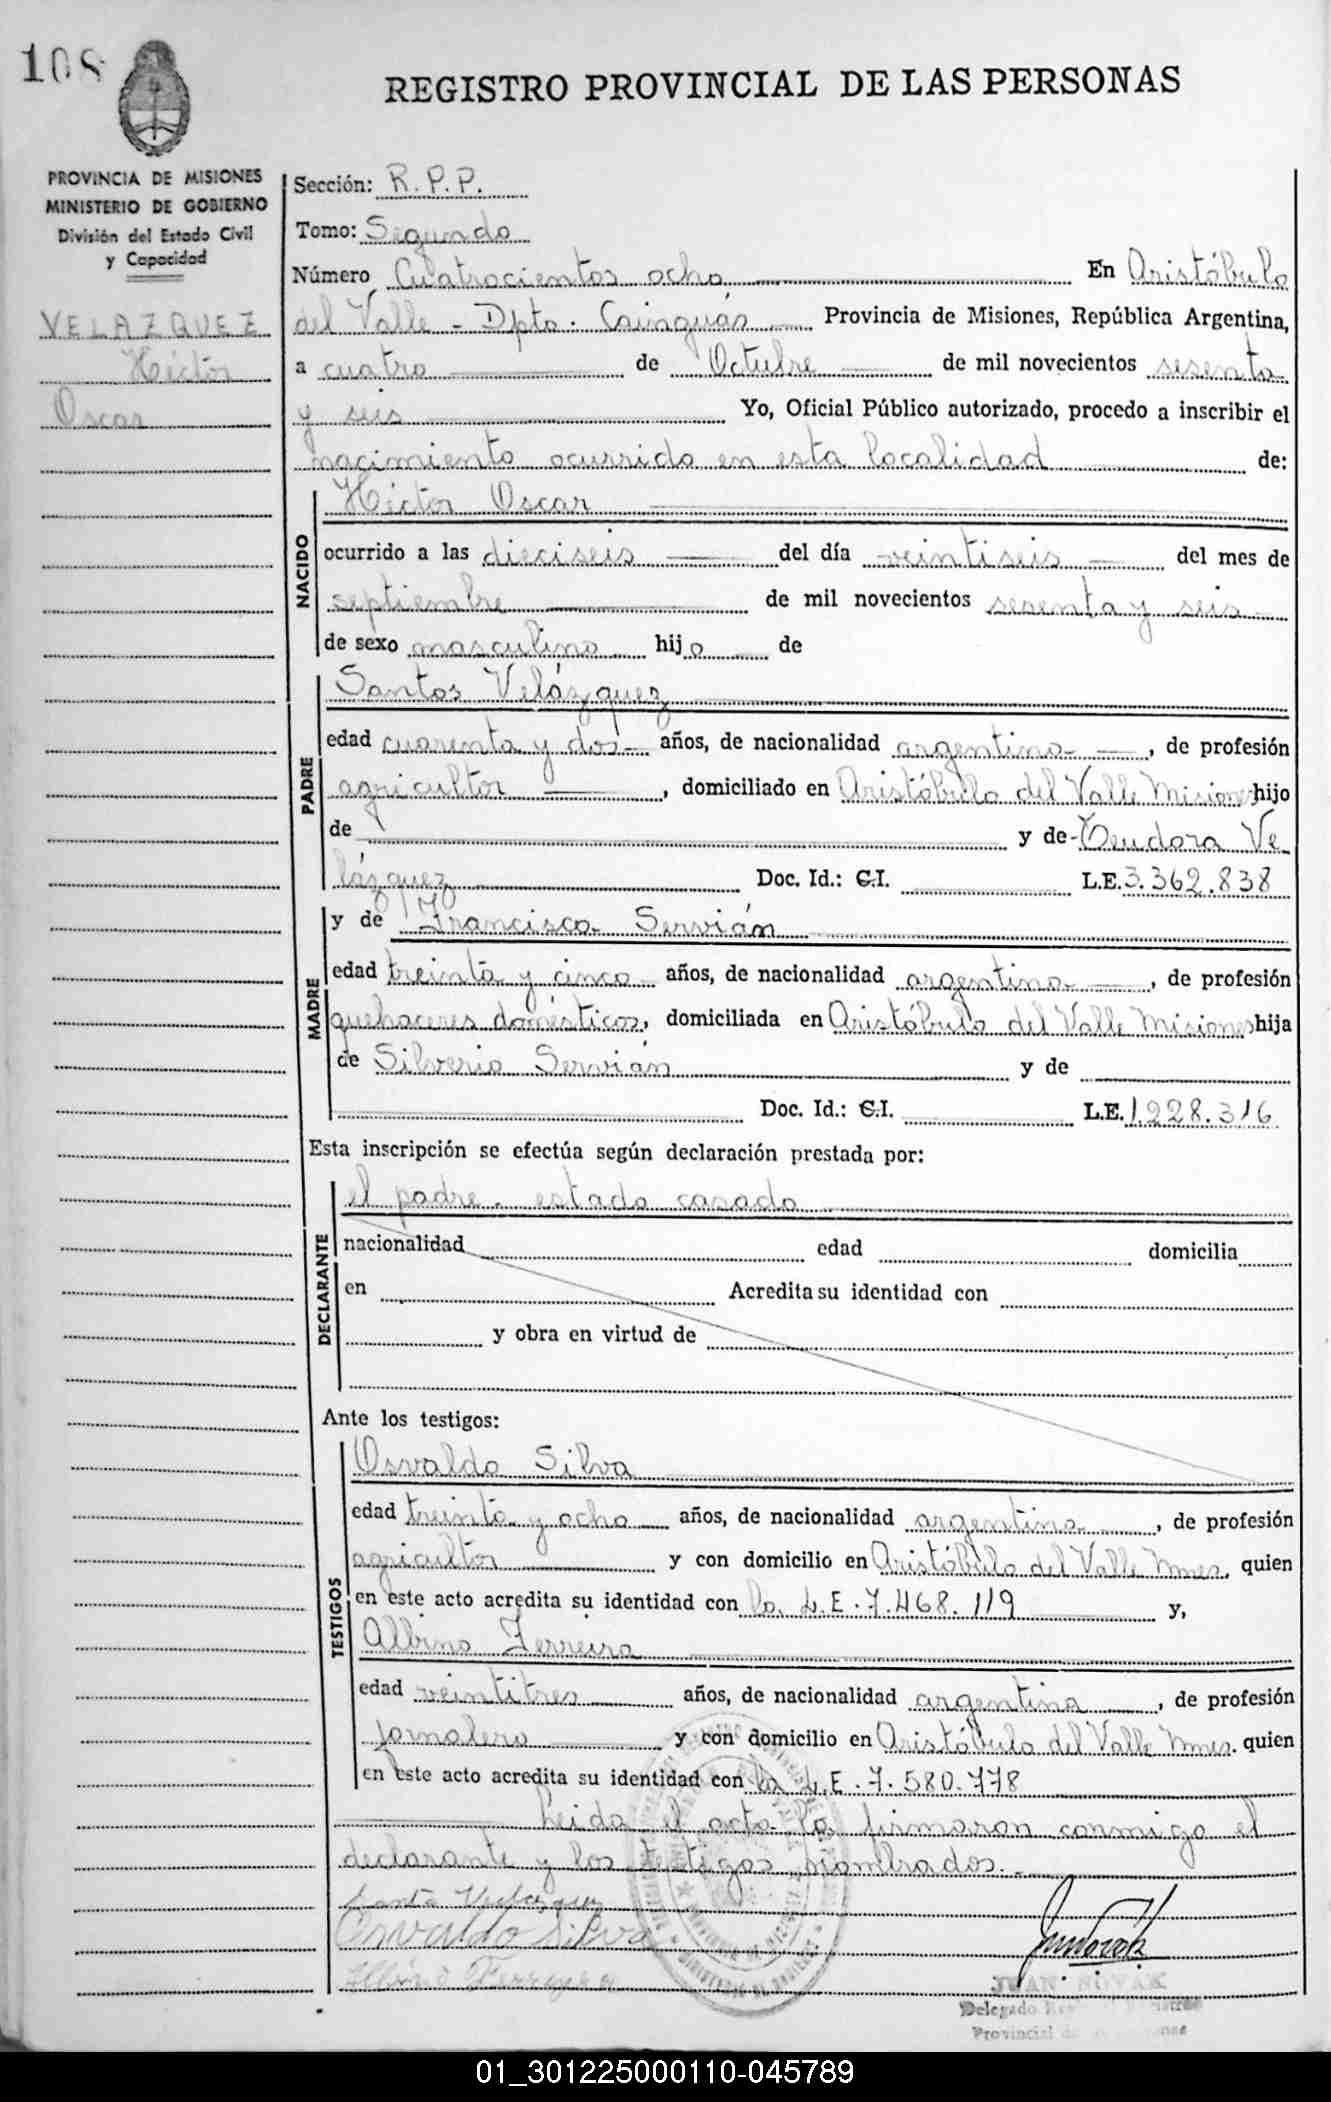 108
REGISTRO PROVINCIAL DE LAS PERSONAS
PROVINCIA DE MISIONES
MINISTERIO DE GOBIERNO
División del Estado Civil
y Capacidad
VELAZQUEZ
Héctor
Oscar
Sección: R.P.P.
Tomo: Segundo
Número Cuatrocientos ocho En Aristóbulo
del Valle - Dpto. Cainguás Provincia de Misiones, República Argentina,
a cuatro de Octubre de mil novecientos sesenta
y seis Yo, Oficial Público autorizado, procedo a inscribir el
nacimiento ocurrido en esta localidad de:
NACIDO
Héctor Oscar
ocurrido a las dieciseis del día veintiseis del mes de
septiembre de mil novecientos sesenta y seis
de sexo masculino hijo de
PADRE
Santos Velázquez
edad cuarenta y dos años, de nacionalidad argentina, de profesión
agricultor, domiciliado en Aristóbulo del Valle Misiones hijo
de y de Teudora Ve
lázquez Doc. Id.: C.I. L.E. 3.362.838
MADRE
y de Francisca Servián
edad treinta y cinco años, de nacionalidad argentina, de profesión
quehaceres domésticos, domiciliada en Aristóbulo del Valle Misiones hija
de Silverio Servián y de
Doc. Id.: C.I. L.E. 1.228.316
Esta inscripción se efectúa según declaración prestada por:
DECLARANTE
el padre. estado casado
nacionalidad edad domicilia
en Acredita su identidad con
y obra en virtud de
Ante los testigos:
TESTIGOS
Osvaldo Silva
edad treinta y ocho años, de nacionalidad argentina, de profesión
agricultor y con domicilio en Aristóbulo del Valle Mnes. quien
en este acto acredita su identidad con la L.E. 7.468.119 y,
Albino Ferreira
edad veintitres años, de nacionalidad argentina, de profesión
jornalero y con domicilio en Aristóbulo del Valle Mnes. quien
en este acto acredita su identidad con la L.E. 7.580.778
Leida el acta la firmaron conmigo el
declarante y los testigos nombrados.
Osvaldo Silva
JUAN NOVAK
Delegado
Provincial
01_301225000110-045789